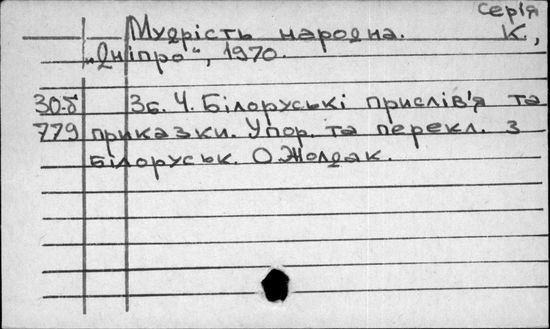 серія
Мудрість народна. К,
„Дніпро“, 1970.
30.б Зб. Ч. Білоруські прислів'я та
779 приказки. Упор. та перекл. з
білоруськ. О.Жолдак.